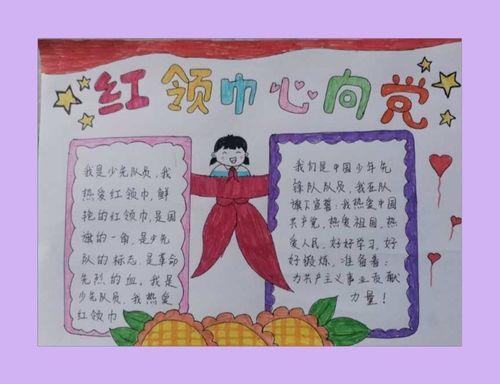 红领巾心向党
我是少先队员，我
热爱红领巾，鲜
艳的红领巾，是国
旗的一角，是少先
队的标志，是革命
先烈的血，我是
少先队员，我热爱
红领巾
我们是中国少年先
锋队队员，我在队
旗下宣誓：我热爱中国
共产党，热爱祖国，热
爱人民，好好学习，好
好锻炼，准备着：
为共产主义事业贡献
力量！